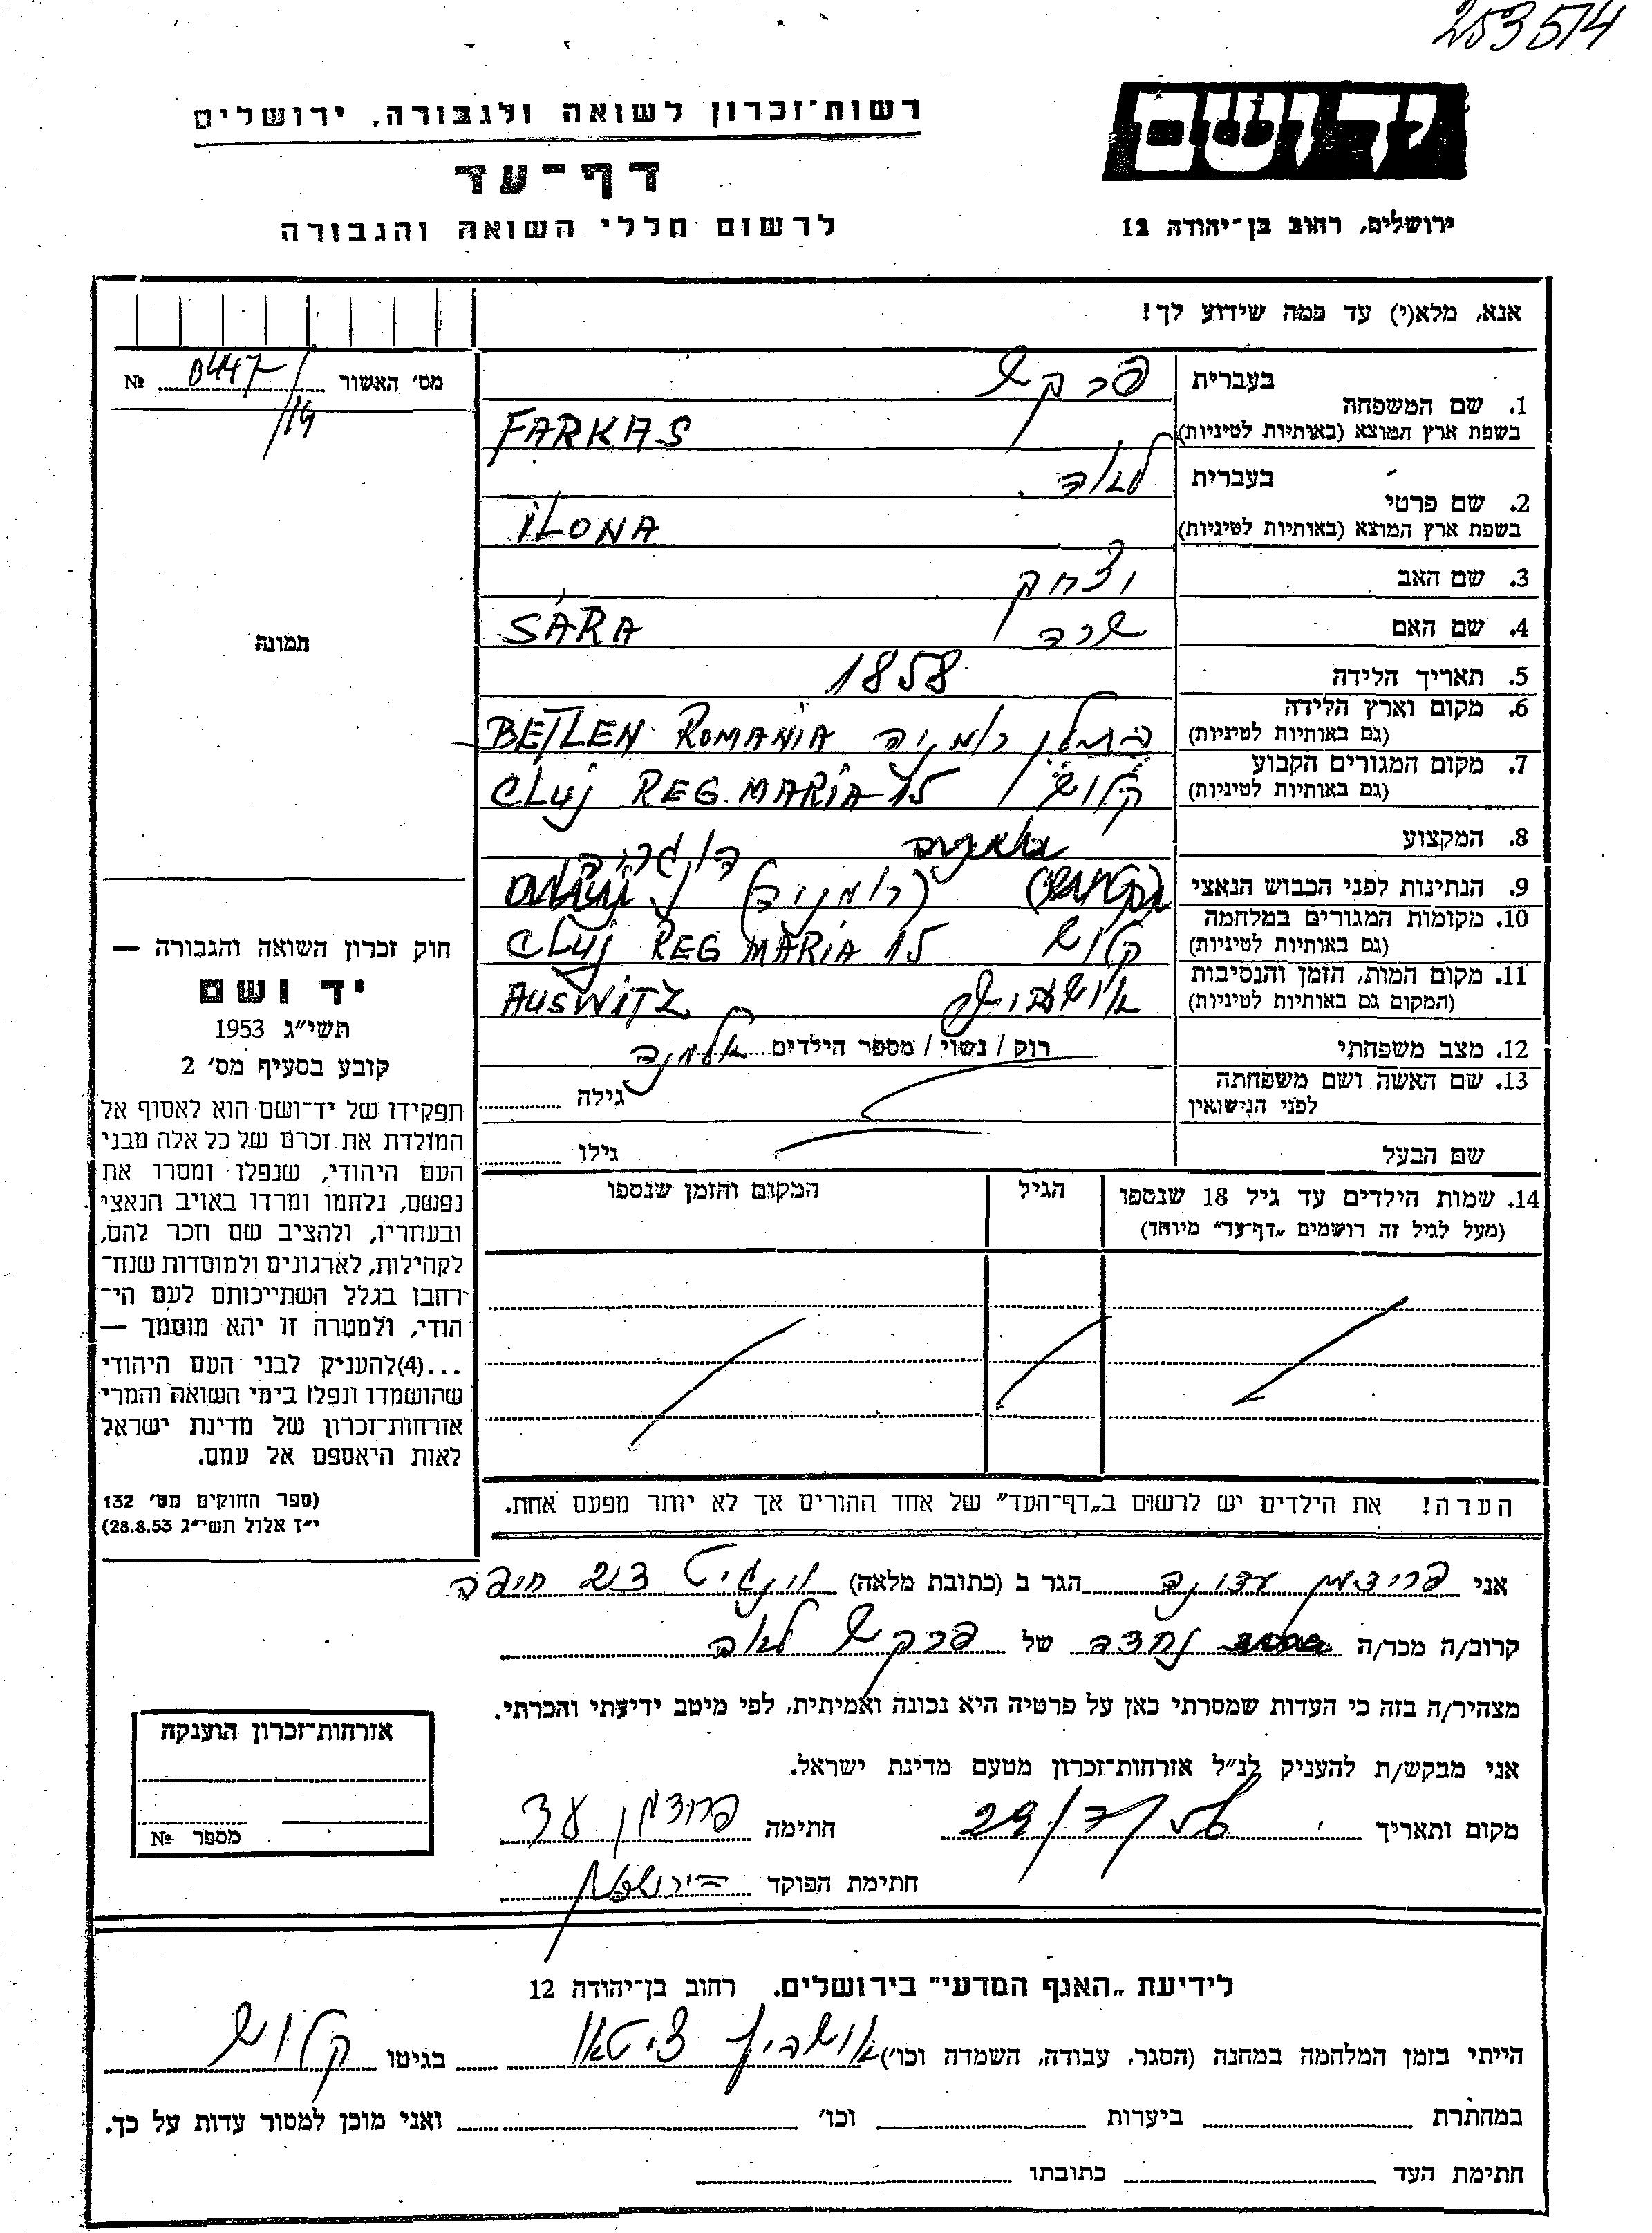 253514
יד ושם
רשות־זכרון לשואה ולגבורה, ירושלים
דף־עד
לרשום חללי השואה והגבורה
ירושלים, רחוב בן־יהודה 12
אנא, מלא(י) עד כמה שידוע לך!
מס׳ האשור № 0447/19
1. שם המשפחה בעברית פרקש
בשפת ארץ המוצא (באותיות לטיניות) FARKAS
2. שם פרטי בעברית לאה
בשפת ארץ המוצא (באותיות לטיניות) ILONA
3. שם האב יצחק
4. שם האם שרה SÁRA
5. תאריך הלידה 1858
6. מקום וארץ הלידה (גם באותיות לטיניות) בתלן רומניה BETLEN ROMANIA
7. מקום המגורים הקבוע (גם באותיות לטיניות) קלוש CLUJ REG. MARIA 15
8. המקצוע
9. הנתינות לפני הכבוש הנאצי (רומניה) הונגריה
10. מקומות המגורים במלחמה (גם באותיות לטיניות) קלוש CLUJ REG MARIA 15
11. מקום המות, הזמן והנסיבות (המקום גם באותיות לטיניות) אושוויץ AUSWITZ
12. מצב משפחתי רוק / נשוי / מספר הילדים אלמנה
13. שם האשה ושם משפחתה לפני הנישואין גילה
שם הבעל גילו
14. שמות הילדים עד גיל 18 שנספו (מעל לגיל זה רושמים „דף־עד" מיוחד) הגיל המקום והזמן שנספו
הערה! את הילדים יש לרשום ב„דף־העד" של אחד ההורים אך לא יותר מפעם אחת.
תמונה
חוק זכרון השואה והגבורה —
יד ושם
תשי״ג 1953
קובע בסעיף מס׳ 2
תפקידו של יד־ושם הוא לאסוף אל
המולדת את זכרם של כל אלה מבני
העם היהודי, שנפלו ומסרו את
נפשם, נלחמו ומרדו באויב הנאצי
ובעוזריו, ולהציב שם וזכר להם,
לקהילות, לארגונים ולמוסדות שנח־
רחבו בגלל השתייכותם לעם הי־
הודי, ולמטרה זו יהא מוסמך —
...(4)להעניק לבני העם היהודי
שהושמדו ונפלו בימי השואה והמרי
אזרחות־זכרון של מדינת ישראל
לאות היאספם אל עמם.
(ספר החוקים מס׳ 132
י״ז אלול תשי״ג 28.8.53)
אני פרידמן עדנה הגר ב (כתובת מלאה) חיפה
קרוב/ה מכר/ה נכדה של פרקש לאה
מצהיר/ה בזה כי העדות שמסרתי כאן על פרטיה היא נכונה ואמיתית, לפי מיטב ידיעתי והכרתי.
אני מבקש/ת להעניק לנ״ל אזרחות־זכרון מטעם מדינת ישראל.
מקום ותאריך חתימה פרידמן עד
חתימת הפוקד
אזרחות־זכרון הוענקה
מספר №
לידיעת „האגף המדעי" בירושלים. רחוב בן־יהודה 12
הייתי בזמן המלחמה במחנה (הסגר, עבודה, השמדה וכו׳) אושויץ ציטאו בגיטו קלוש
במחתרת ביערות וכו׳ ואני מוכן למסור עדות על כך.
חתימת העד כתובתו